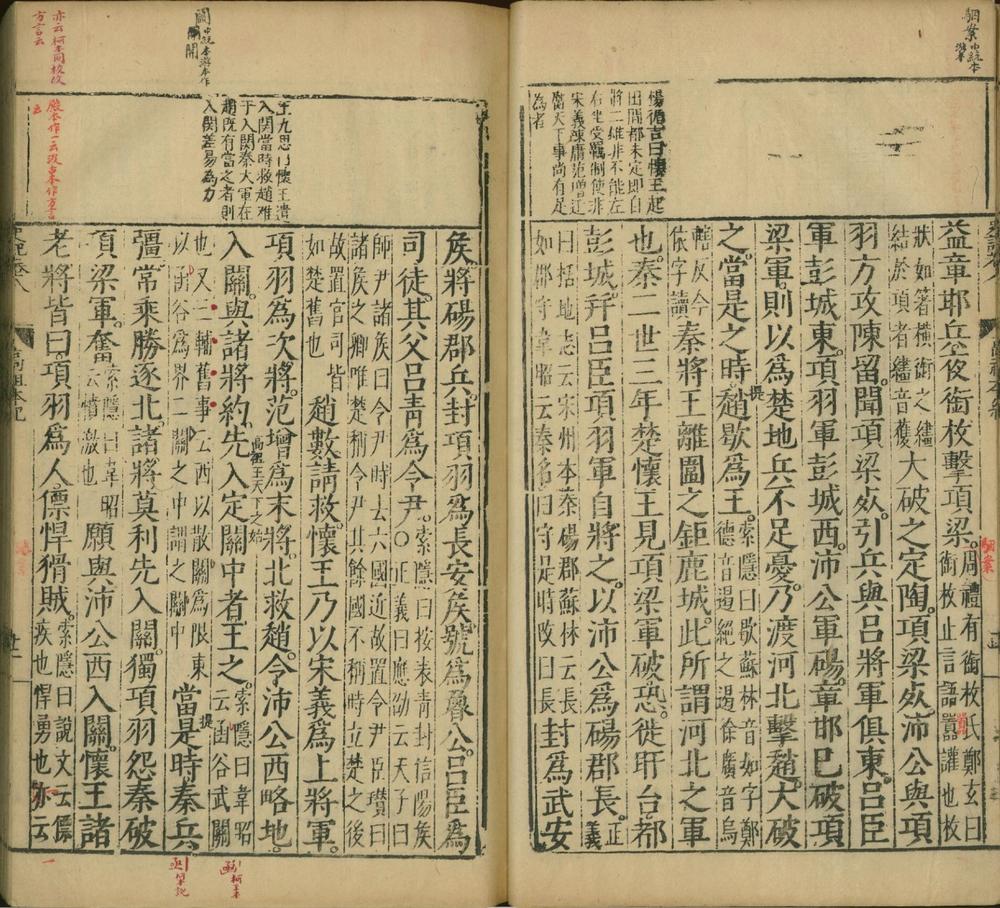 駰案中統本
游本
楊循吉曰懷王起
田間都未定即自
將二雄非不能左
右坐受羈制使非
宋義疎庸范增迂
當天下事尚有足
為者
益章邯兵夜銜枚擊項梁。周禮有銜枚氏鄭玄曰銜枚止言語囂讙也枚
狀如箸橫銜之繣結於項者繣音獲大破之定陶。項梁死。沛公與項
羽方攻陳留。聞項梁死。引兵與呂將軍俱東。呂臣
軍彭城東。項羽軍彭城西。沛公軍碭。章邯已破項
梁軍。則以爲楚地兵不足憂。乃渡河北擊趙。大破
之。當是之時。趙歇爲王。索隱曰歇蘇林音如字鄭德音遏絕之遏徐廣音烏
轄反今依字讀秦將王離圍之鉅鹿城。此所謂河北之軍
也。秦二世三年。楚懷王見項梁軍破恐。徙盱台。都
彭城。幷呂臣項羽軍自將之。以沛公爲碭郡長。正義
曰括地志云宋州本秦碭郡蘇林云長如郡守韋昭云秦名曰守是時改曰長封爲武安
駰案
提
關中統本游本作
開
王九思曰懷王遣
入關當時救趙難
于入關秦大軍在
趙既有當之者則
入關差易為力
亦云柯本同校改
方言云
殿本作一云
矦將碭郡兵。封項羽爲長安矦。號爲魯公。呂臣爲
司徒。其父呂青爲令尹。索隱曰按表青封信陽矦○正義曰應劭云天子曰
師尹諸矦曰令尹時去六國近故置令尹臣瓚曰諸矦之卿唯楚稱令尹其餘國不稱時立楚之後
故置官司皆如楚舊也趙數請救。懷王乃以宋義爲上將軍。
項羽爲次將。范增爲末將。北救趙。令沛公西略地
高祖王天下之始
入關。與諸將約。先入定關中者王之。索隱曰韋昭云函谷武關
也又三輔舊事云西以散關爲限東以函谷爲界二關之中謂之關中當是時秦兵
提
彊常乘勝逐北。諸將莫利先入關。獨項羽怨秦破
項梁軍。奮索隱曰韋昭云憤激也願與沛公西入關。懷王諸
老將皆曰。項羽爲人。僄悍猾賊。索隱曰說文云僄疾也悍勇也亦云